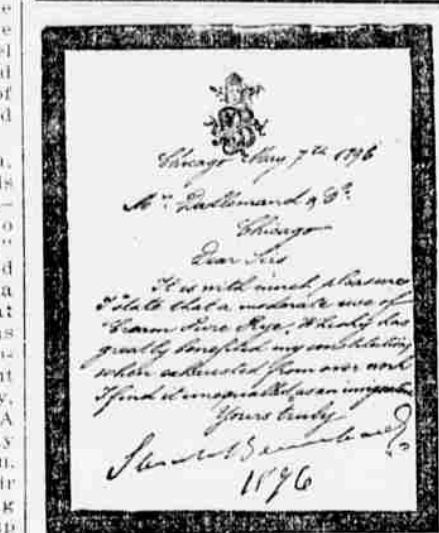 Chicago May 7th 1896
Mrs Dallemand & Co.
Chicago
Dear Sirs
It is with much pleasure
I state that a moderate use of
Cream Pure Rye Whisky has
greatly benefited my constitution
when exhausted from over work
I find it unequalled as an
Yours truly
Sarah Bernhardt
1896